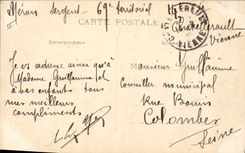 Sergent 69e territorial
CARTE POSTALE
Correspondance
Vienne
VIENNE
Je vs adresse ainsi qu'à
Madame Guillaume et
à vos enfants tous
mes meilleurs
compliments
Monsieur Guillaume
Conseiller municipal
Rue
Colombes
Seine